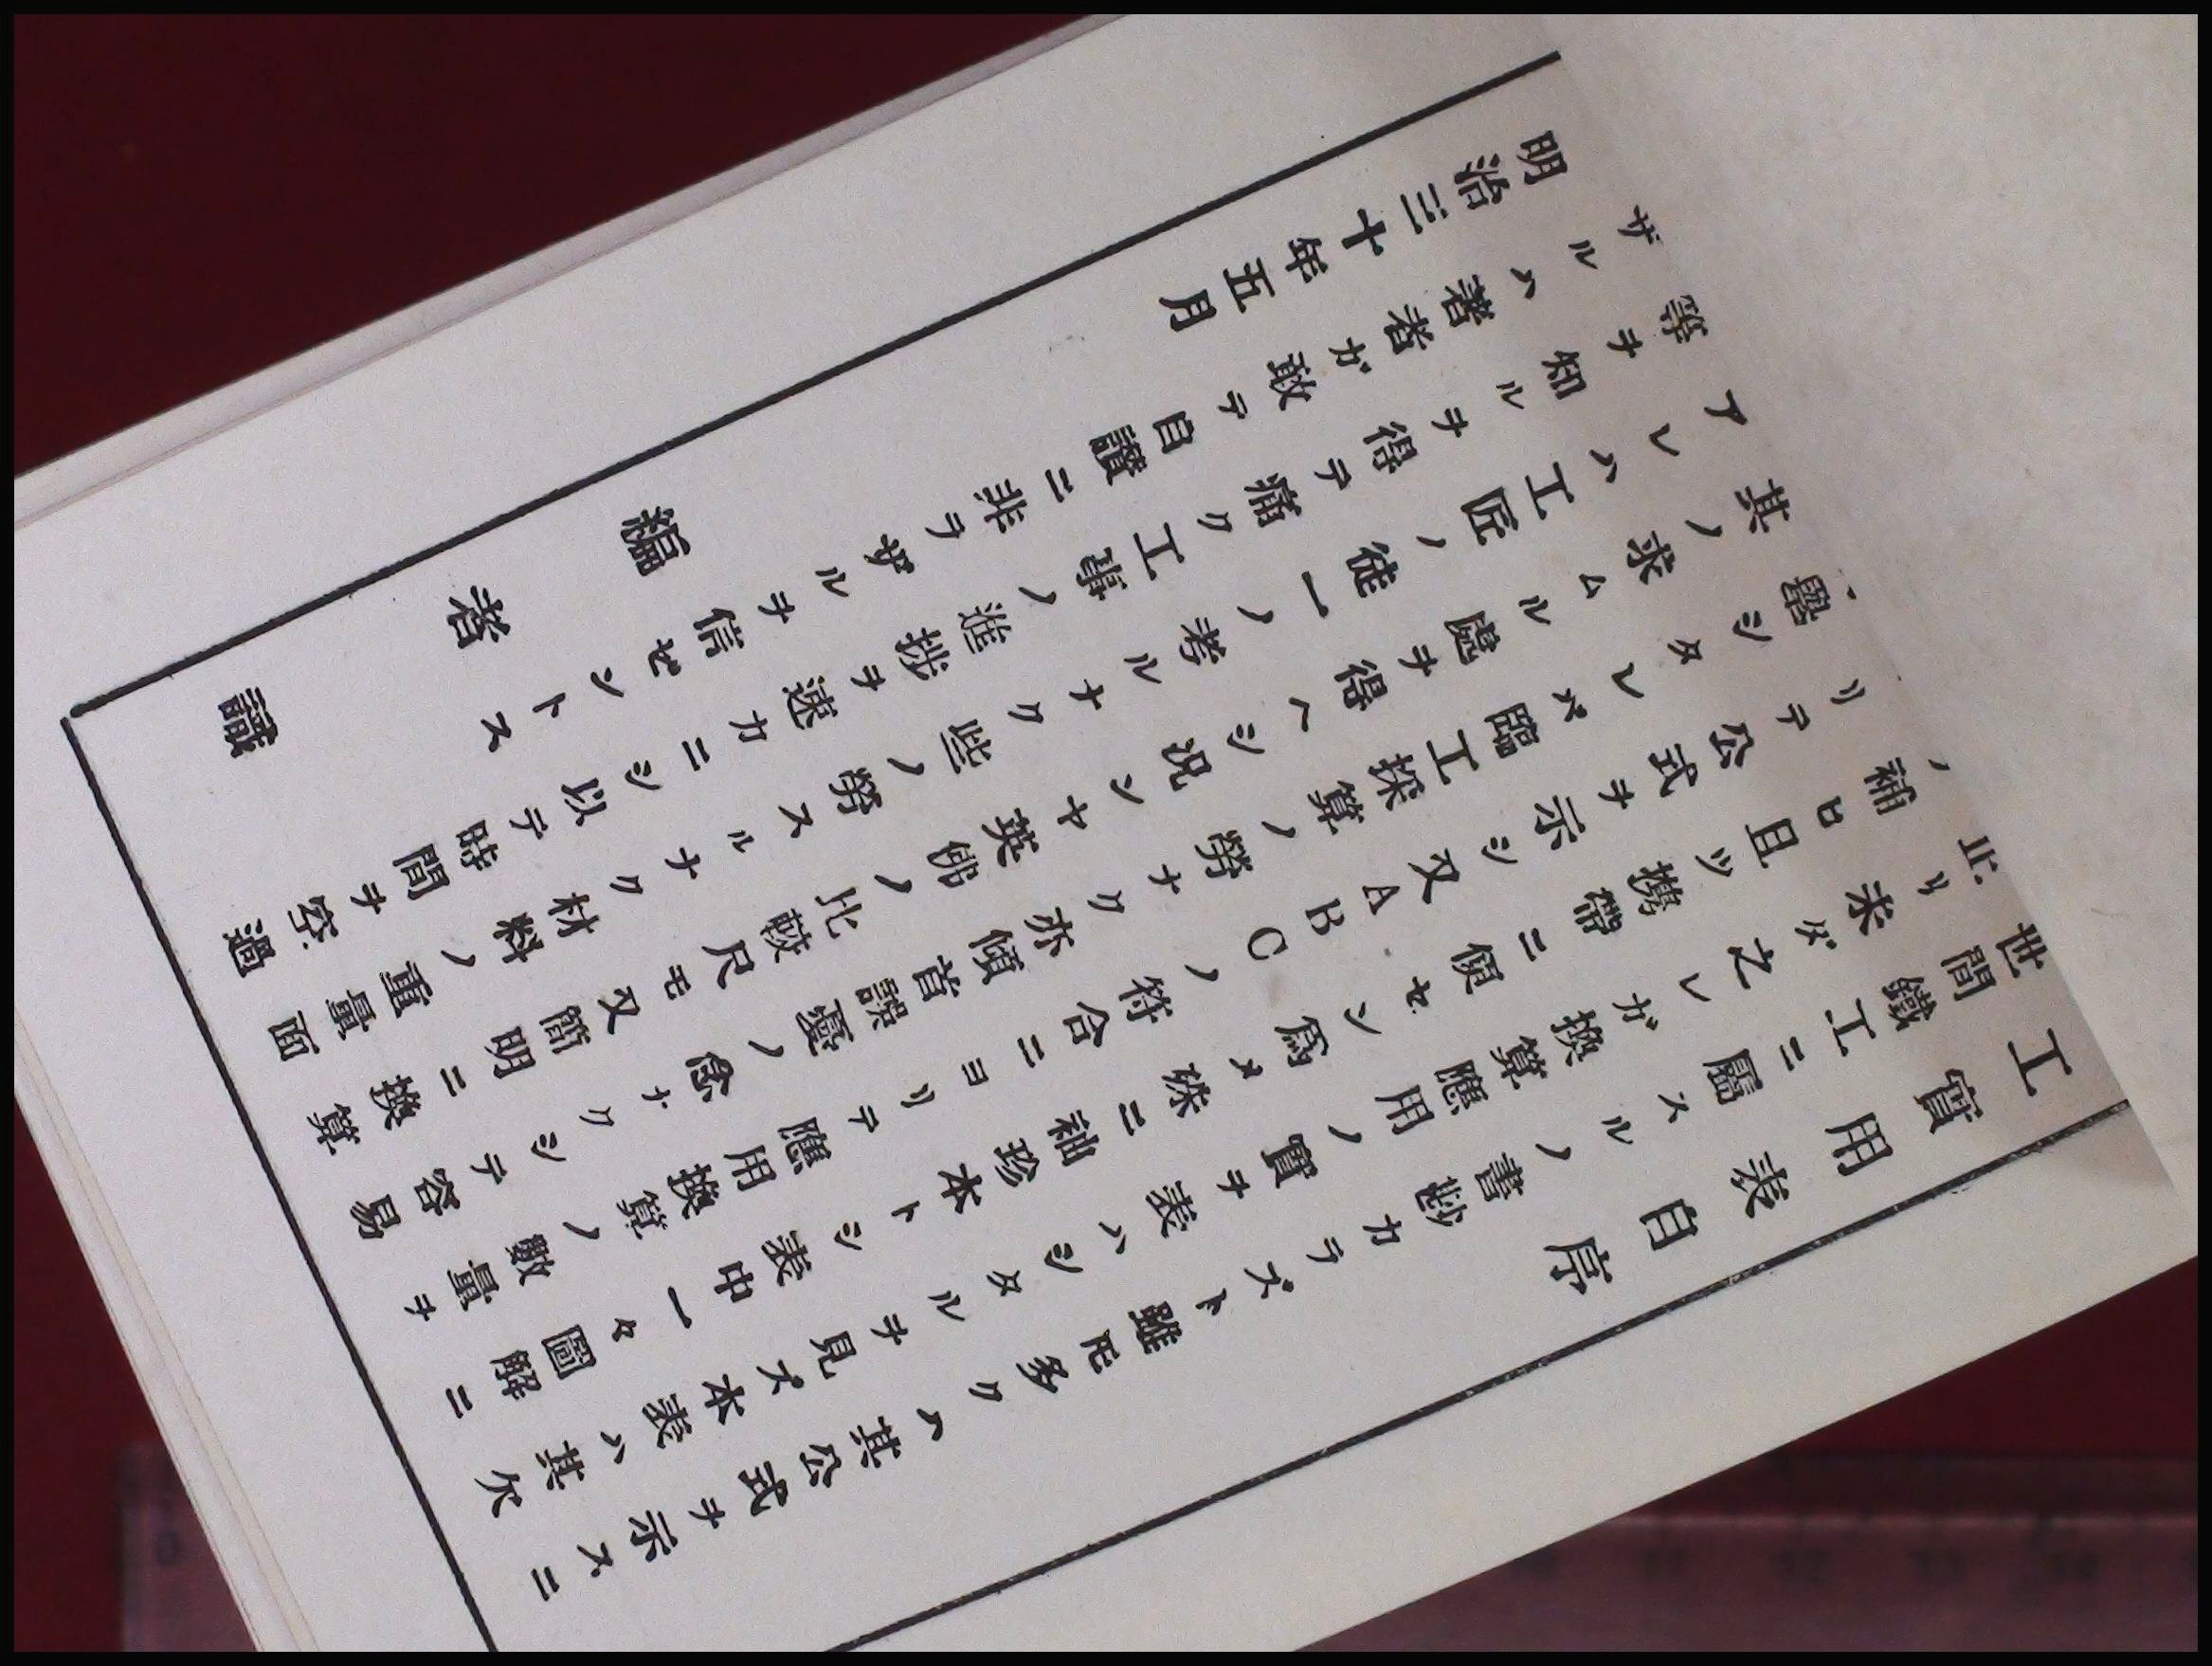 工實用表自序
世間鐵工ニ屬スルノ書尠カラズト雖モ多クハ其公式ヲ示スニ
止リ未ダ之レガ換算應用ノ實ヲ表ハシタルヲ見ズ本表ハ其欠
ノ補ヒ且ツ携帶ニ便セン爲メ殊ニ袖珍本トシ表中一々圖解ニ
リテ公式ヲ示シ又ABCノ符合ニヨリテ應用換算ノ數量ヲ
擧シタレバ臨工採算ノ勞ナク亦傾首誤憂ノ念ナクシテ容易
其ノ求ムル處ヲ得ヘシ況ンヤ英佛ノ比較尺モ又簡明ニ換算
アレハ工匠ノ徒一ノ考ルナク些ノ勞スルナク材料ノ重量面
等ヲ知ルヲ得テ痛ク工事ノ進捗ヲ速カニシ以テ時間ヲ空過
ザルハ著者ガ敢テ自讚ニ非ラザルヲ信ゼントス
明治三十年五月
編者識